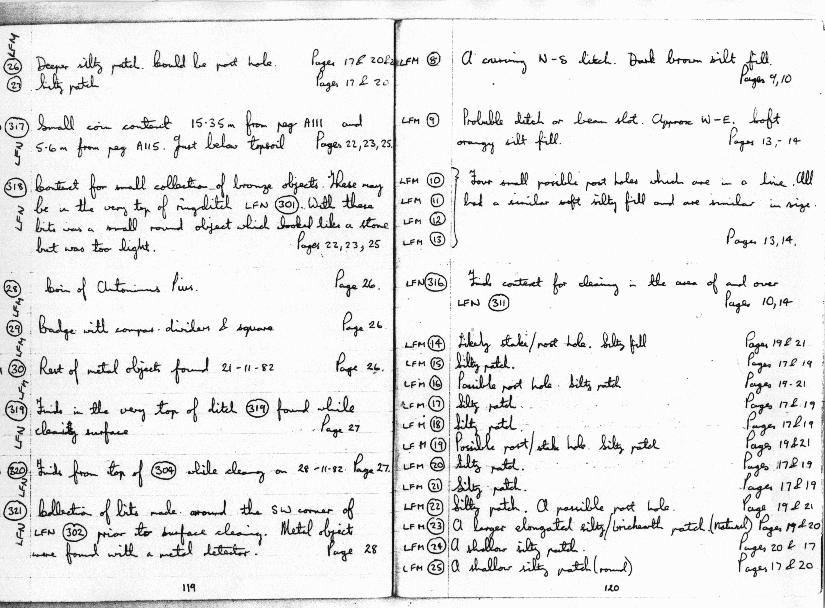 LFM
26 Deeper silty patch. Could be post hole. Pages 17 & 20
27 Silty patch Pages 17 & 20
317 Small coin context 15.35m from peg A111 and
LFN 5.6m from peg A115. Just below topsoil Pages 22,23,25
318 Context for small collection of bronze objects. These may
LFN be in the very top of ringditch LFN 301. With these
bits was a small round object which looked like a stone
but was too light. Pages 22, 23, 25
28 LFM Coin of Antoninus Pius. Page 26.
29 LFM Badge with compas. dividers & square Page 26
30 LFM Rest of metal objects found 21-11-82 Page 26.
319 Finds in the very top of ditch 319 found while
LFN cleaning surface Page 27
320 LFN Finds from top of 304 while cleaning on 28-11-82. Page 27.
321 Collection of bits made around the SW corner of
LFN LFN 302 prior to surface cleaning. Metal object
were found with a metal detector. Page 28
119
LFM 8 A curving N-S ditch. Dark brown silt fill.
Pages 9,10
LFM 9 Probable ditch or beam slot. Approx W-E. Soft
orangy silt fill. Pages 13,-14
LFM 10 Four small possible post holes which are in a line. All
LFM 11 had a similar soft silty fill and are similar in size.
LFM 12
LFM 13 Pages 13,14.
LFN 316 Finds context for cleaning in the area of and over
LFN 311 Pages 10,14
LFM 14 Likely stake/post hole. Silty fill Pages 19 & 21
LFM 15 Silty patch. Pages 17 & 19
LFM 16 Possible post hole. Silty patch Pages 19-21
LFM 17 Silty patch. Pages 17 & 19
LFM 18 Silty patch. Pages 17 & 19
LFM 19 Possible post/stake hole. Silty patch Pages 19 & 21
LFM 20 Silty patch. Pages 17 & 19
LFM 21 Silty patch. Pages 17 & 19
LFM 22 Silty patch. A possible post hole. Page 19 & 21
LFM 23 A larger elongated silty/brickearth patch (natural) Pages 19 & 20
LFM 24 A shallow silty patch. Pages 20 & 17
LFM 25 A shallow silty patch (round) Pages 17 & 20
120